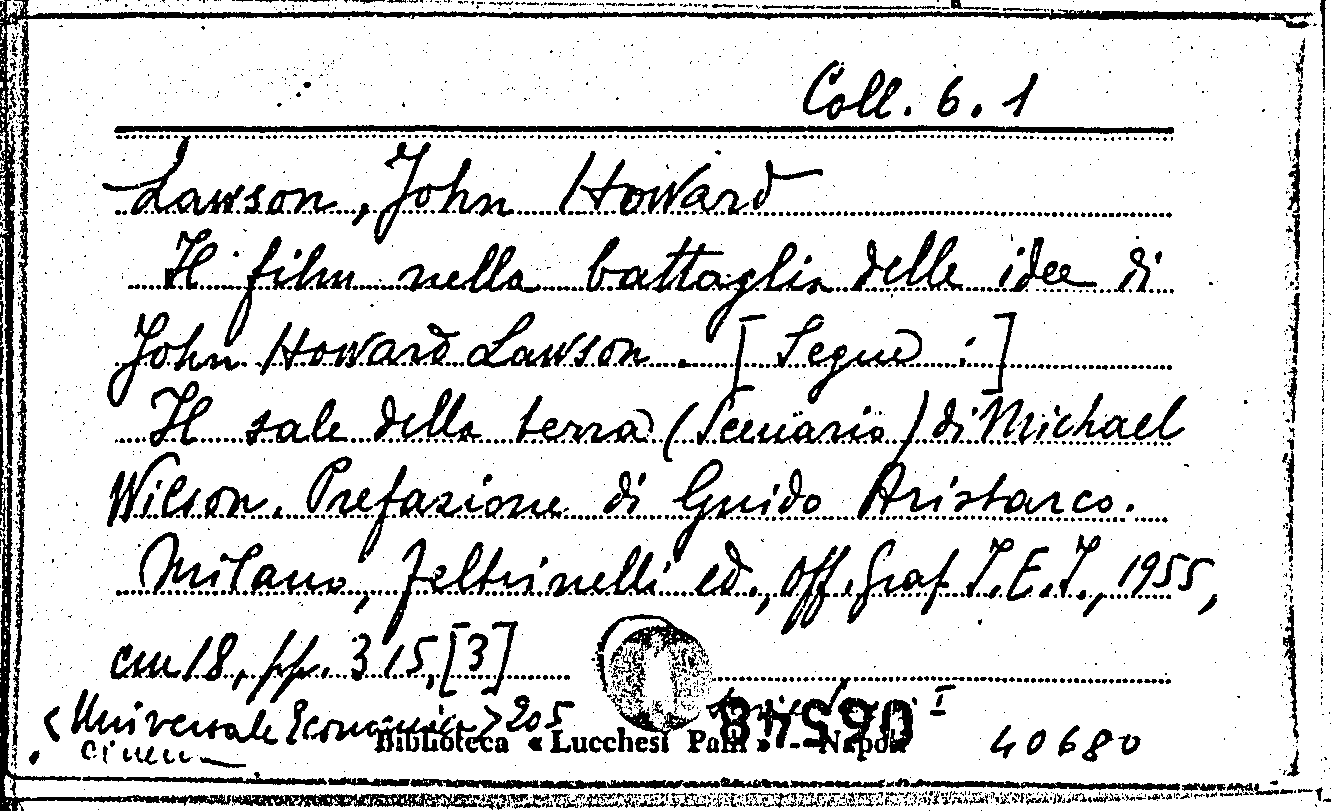 Coll. 6. 1
Lawson, John Howard
Il film nella battaglia delle idee di
John Howard Lawson. [Segue:]
Il sale della terra (Scenario) di Michael
Wilson. Prefazione di Guido Aristarco.
Milano, Feltrinelli ed., Off. Graf. I.E.I., 1955,
cm 18, pp. 315, [3]
<Universale Economica> 205
I
Biblioteca « Lucchesi Palli » - Napoli
40680